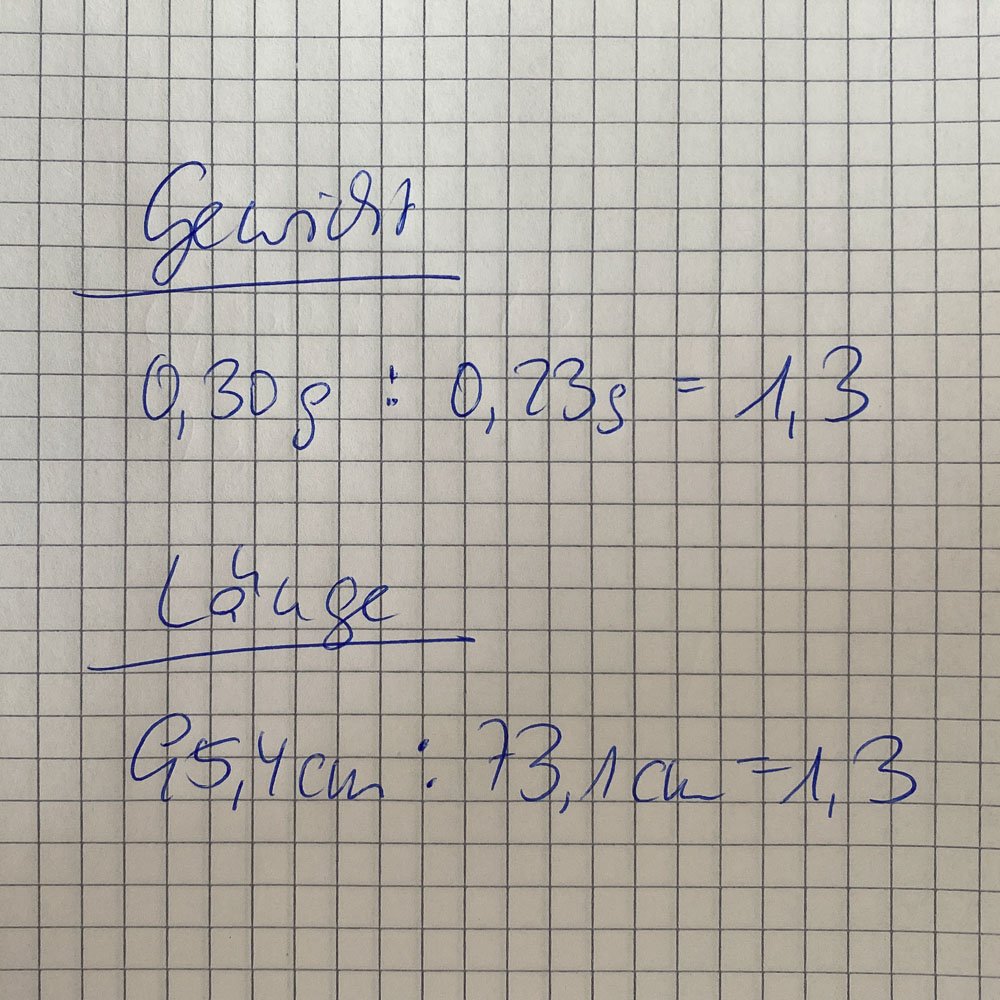 Gewicht
0,30g : 0,23g = 1,3
Länge
95,4cm : 73,1cm = 1,3